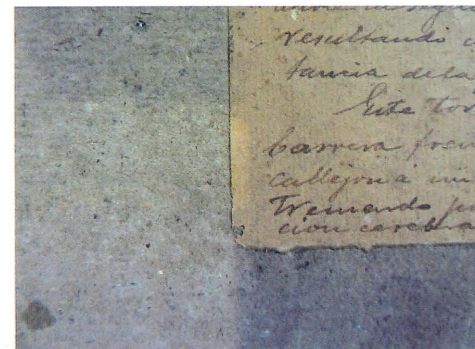 resultando
tancia de la
Este tor
barrera fren
callejon á un
Tremendo
cion cerebra